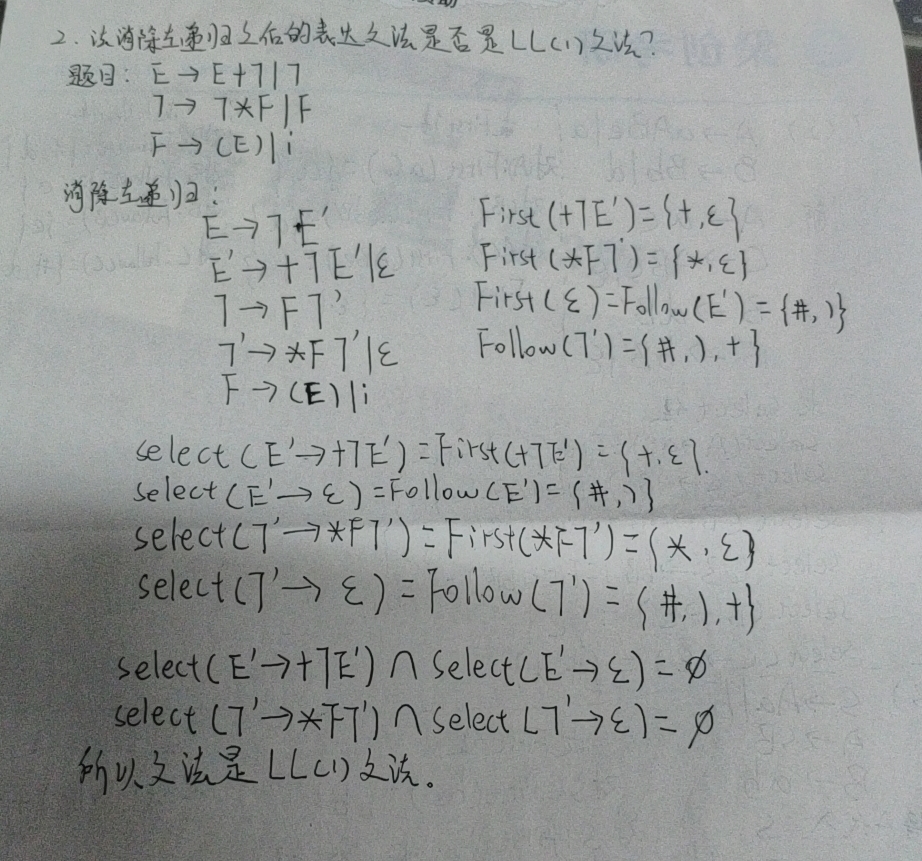 2. 该消除左递归之后的表达文法是否是LL(1)文法?
题目: E→E+T|T
T→T*F|F
F→(E)|i
消除左递归:
E→TE'
E'→+TE'|ε
T→FT'
T'→*FT'|ε
F→(E)|i
First(+TE')={+,ε}
First(*FT')={*,ε}
First(ε)=Follow(E')={#,)}
Follow(T')={#,),+}
select(E'→+TE')=First(+TE')={+,ε}.
select(E'→ε)=Follow(E')={#,)}
select(T'→*FT')=First(*FT')={*,ε}
select(T'→ε)=Follow(T')={#,),+}
select(E'→+TE')∩select(E'→ε)=∅
select(T'→*FT')∩select(T'→ε)=∅
所以文法是LL(1)文法。